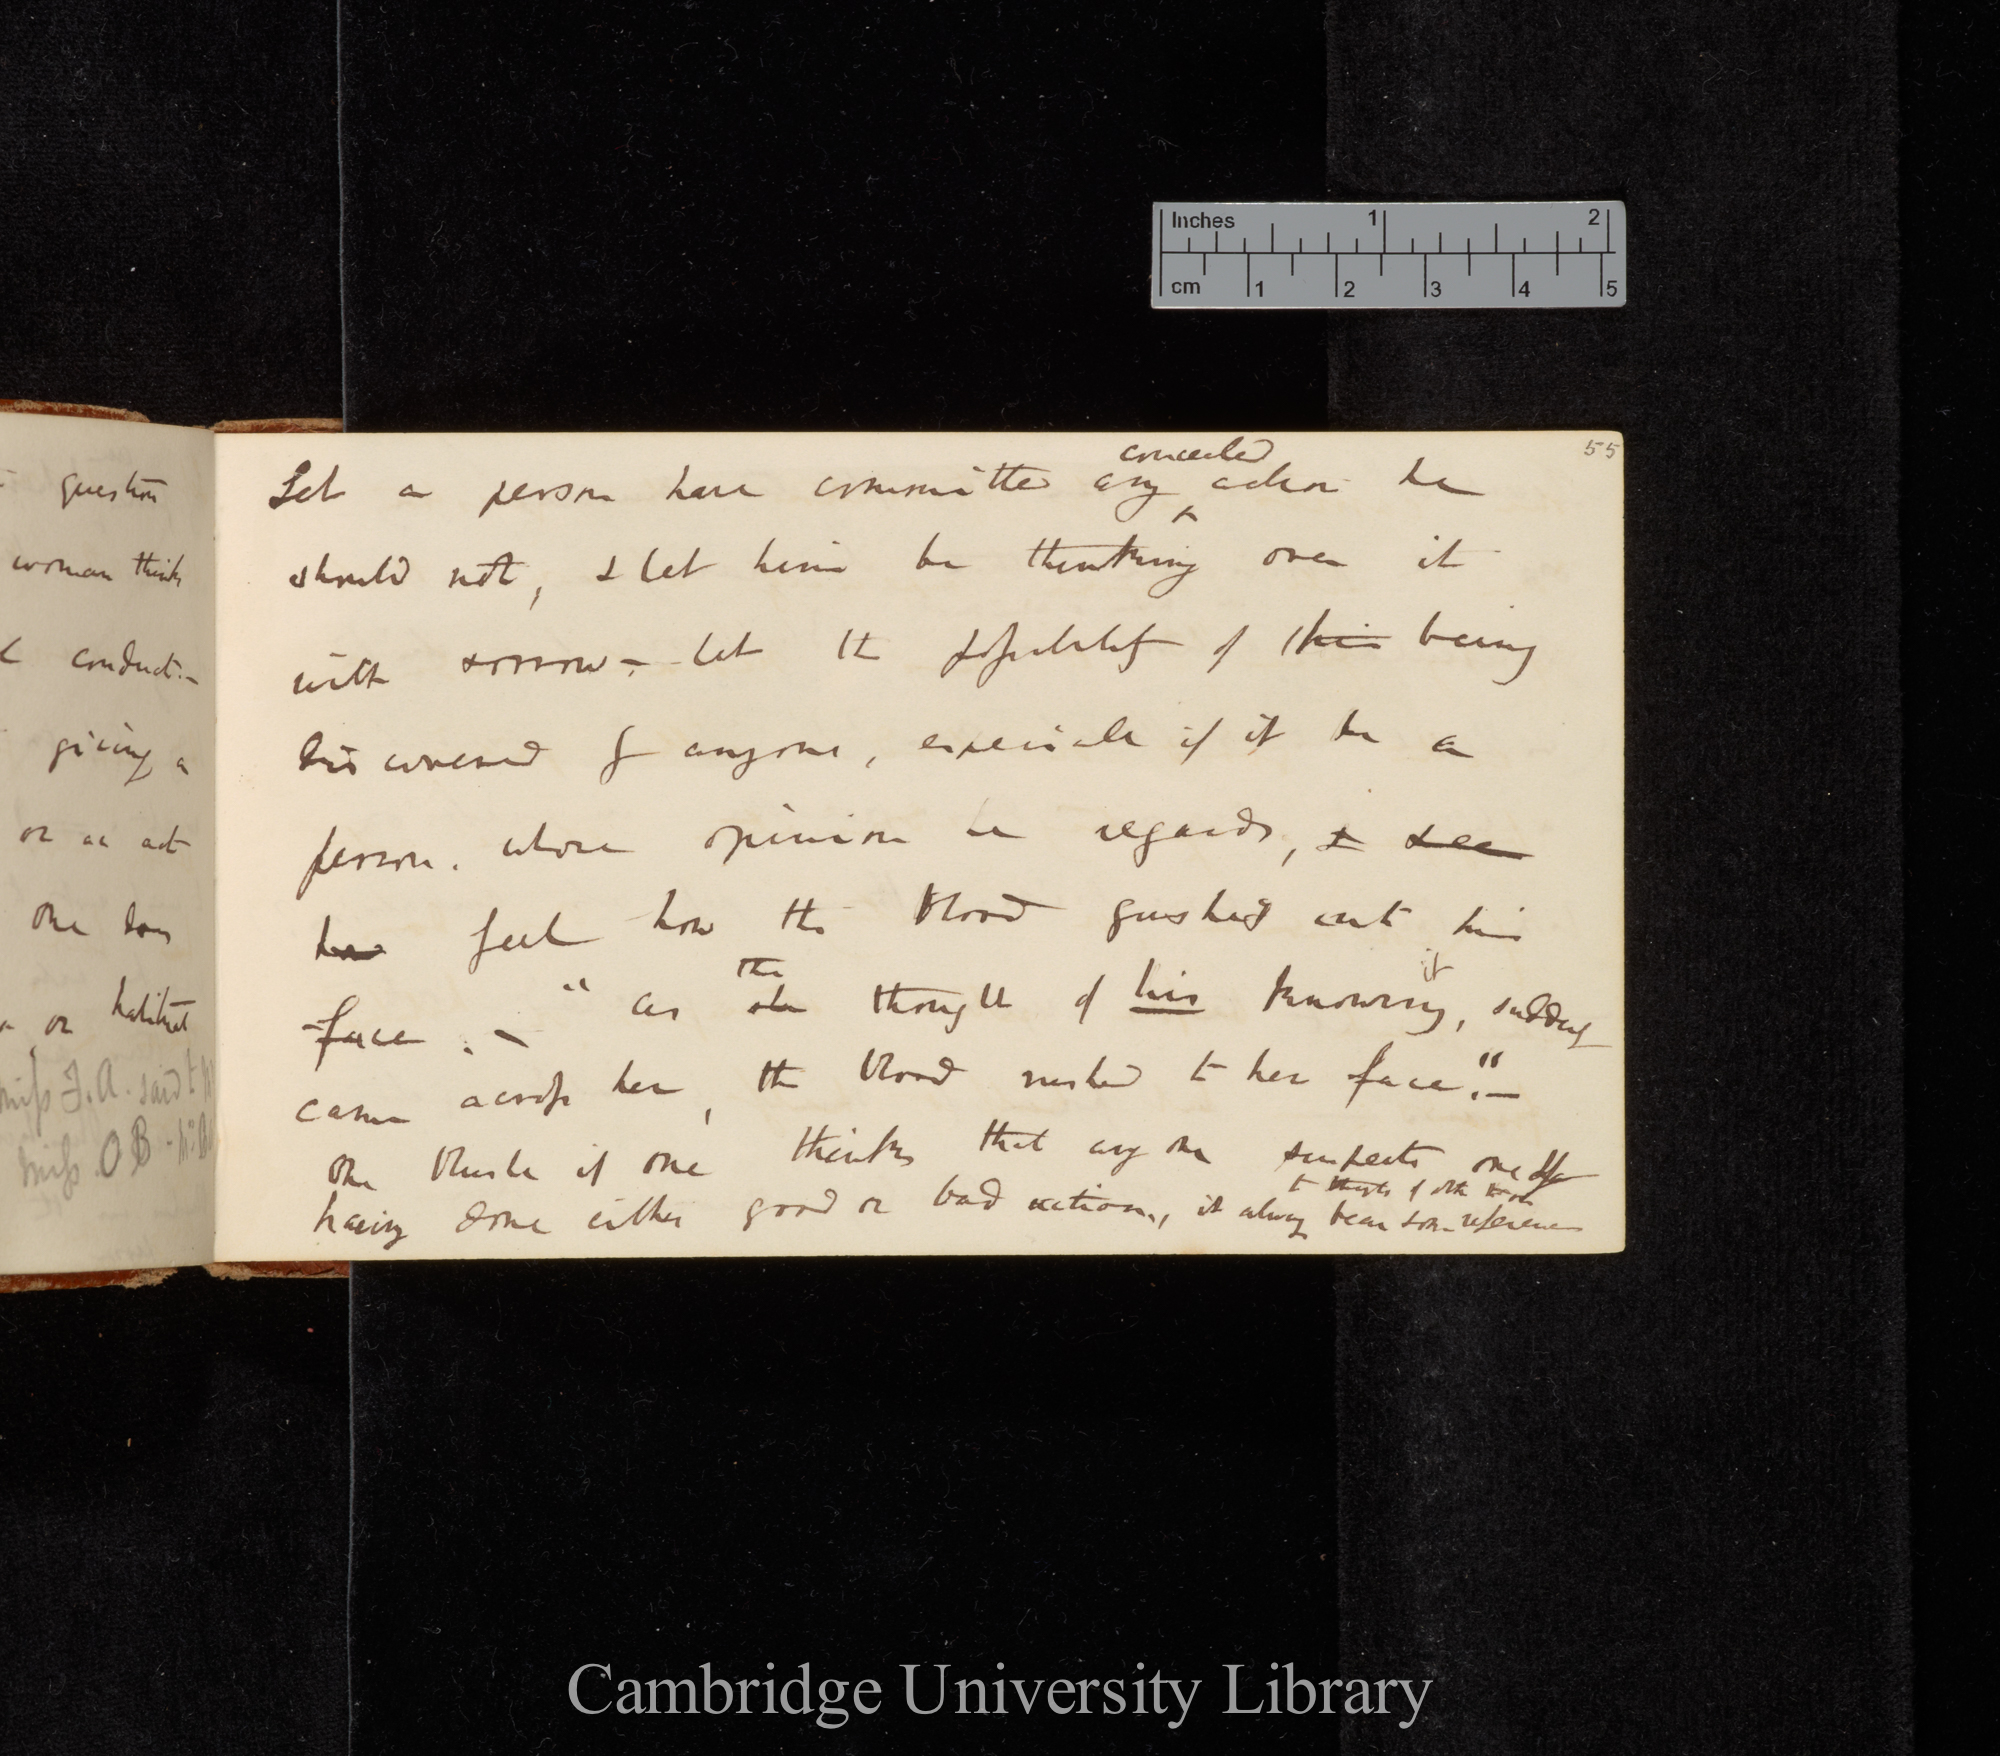 Inches 1 2
cm 1 2 3 4 5
question
woman thinks
conduct.—
giving a
or an act
one does
or habitual
Miss F.A. said to
Miss OB
55
concealed
Let a person have committed any action he
should not, & let him be thinking over it
with sorrow.— let the possibility of his being
discovered by anyone, especially if it be a
person. whose opinion he regards, & see
how feel how the blood gushes into his
face.— "as the thought of his knowing it, suddenly
came across her, the blood rushed to her face."—
One blushes if one thinks that any one suspects one of
having done either good or bad action, it always bears some reference
to thoughts of other person
Cambridge University Library